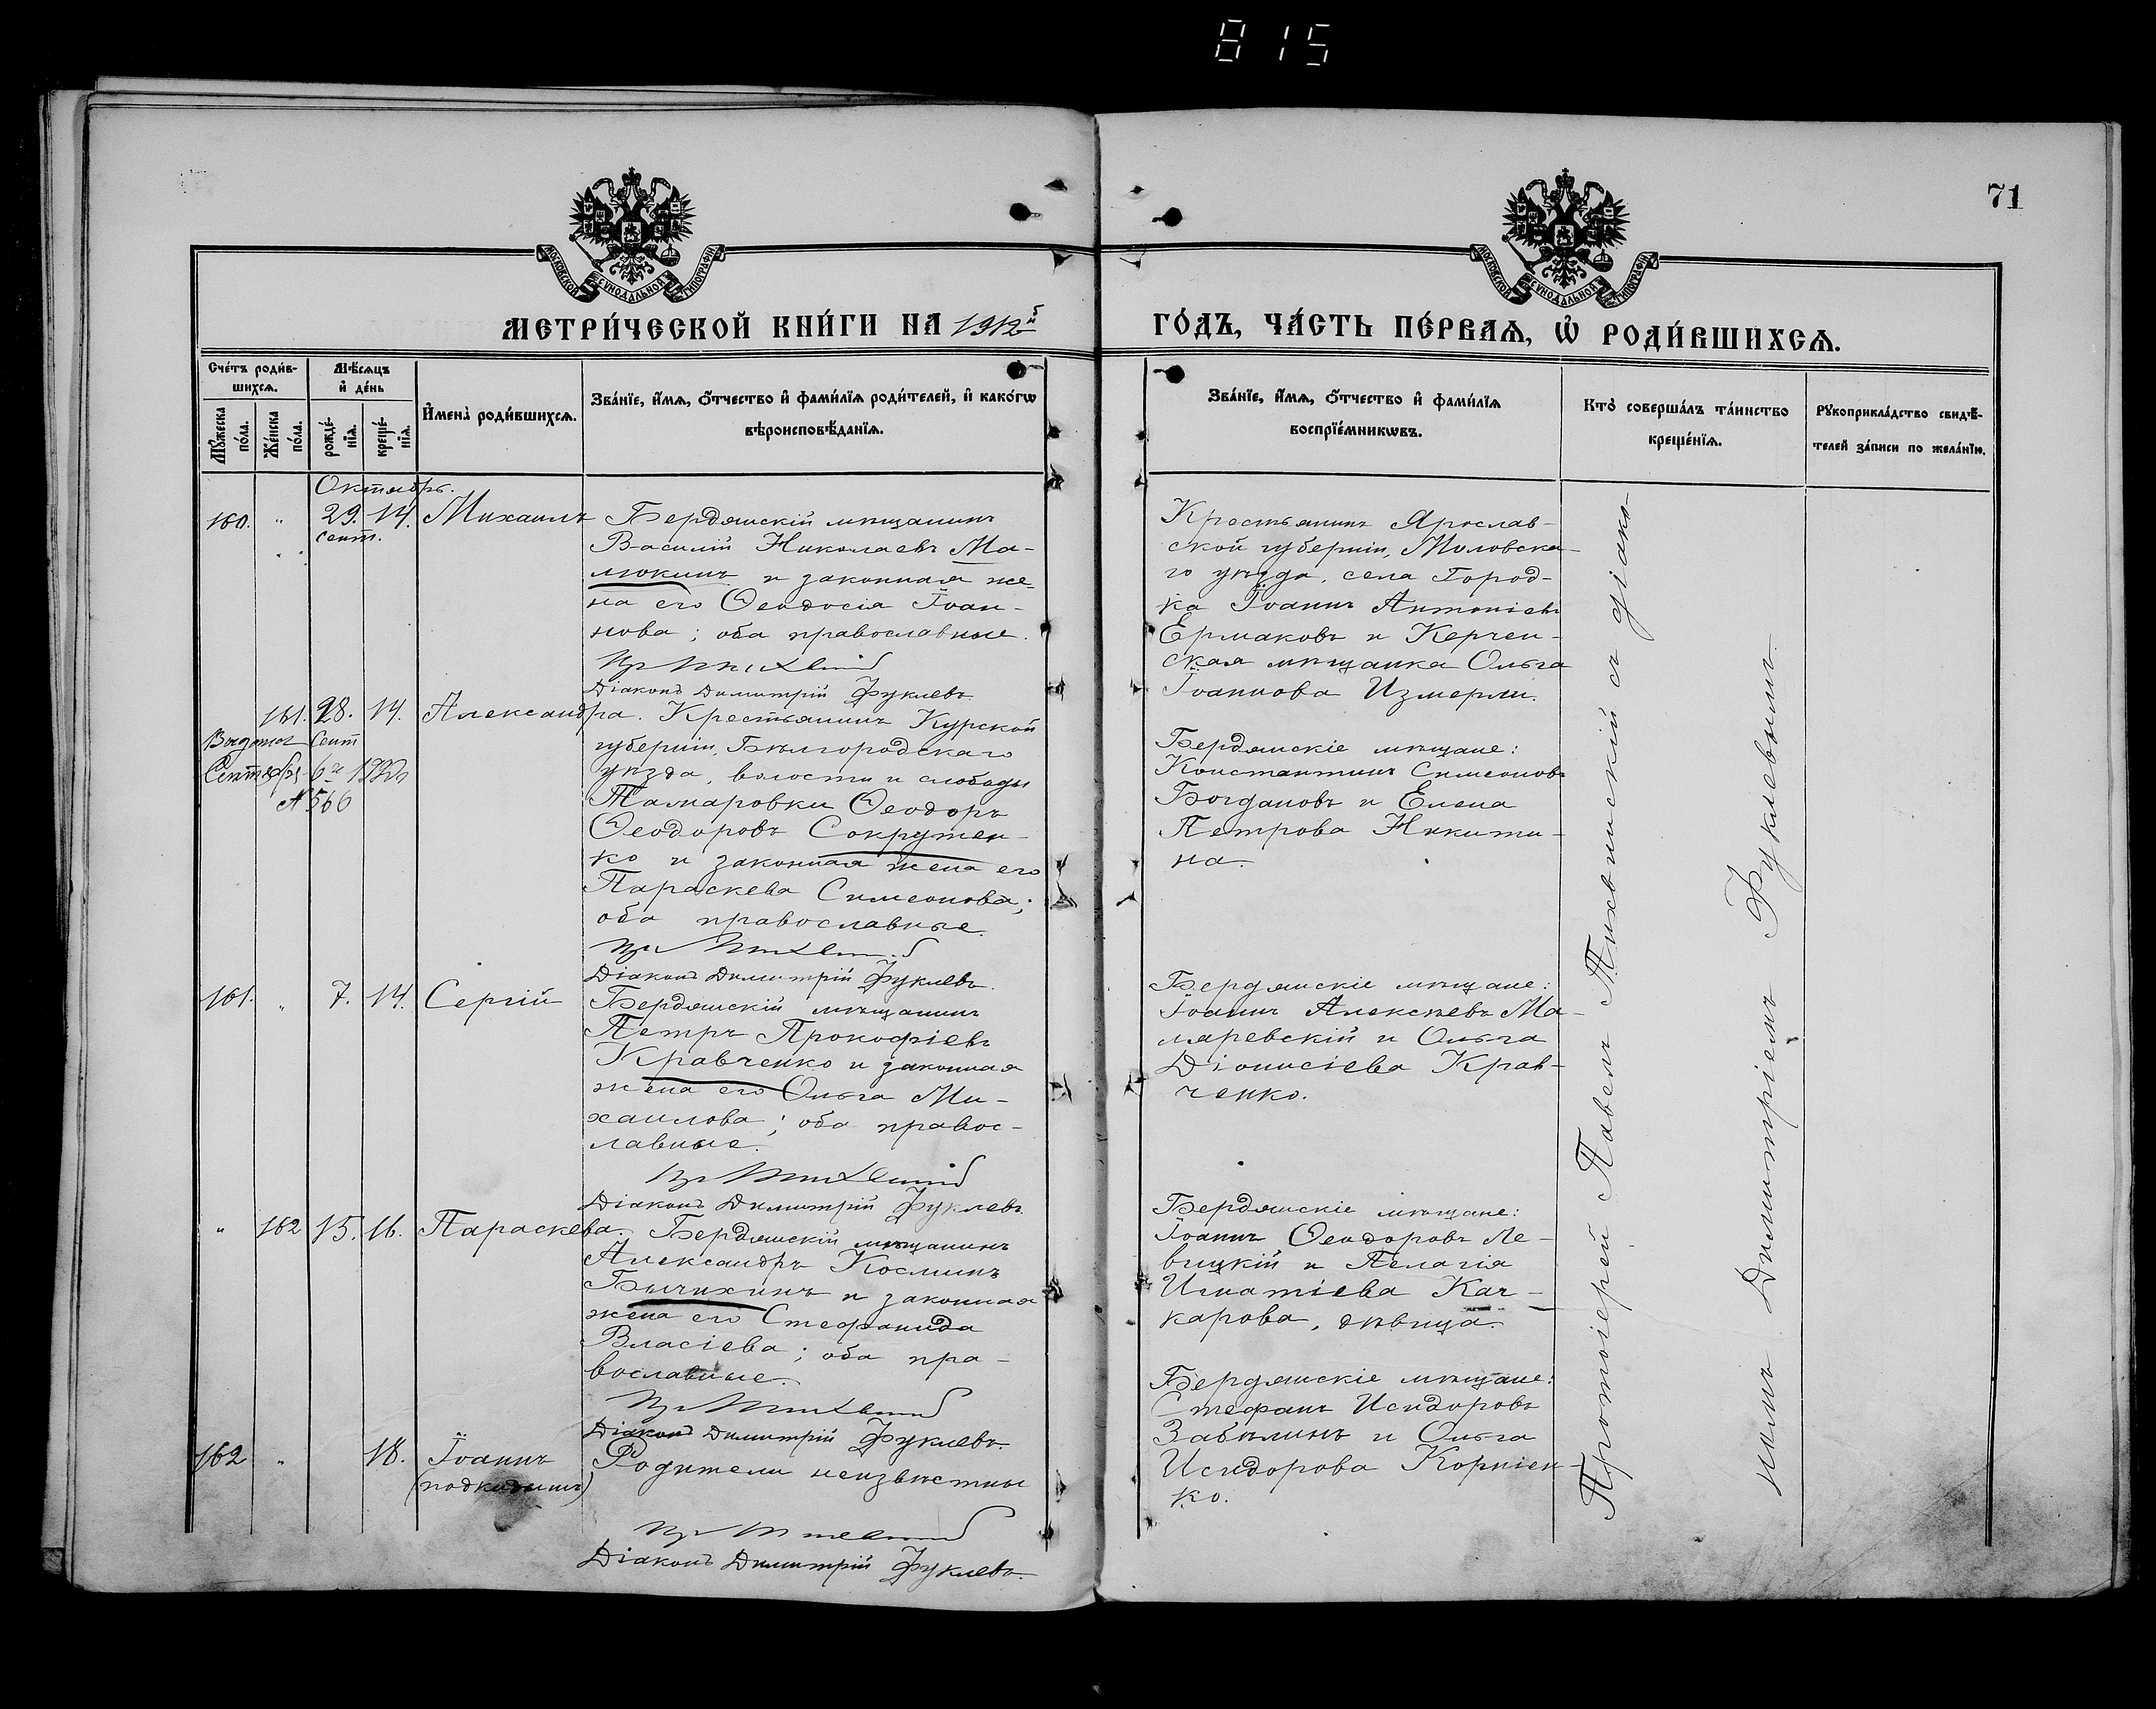 815
71
МОСКОВСКОЙ СѴНОДАЛЬНОЙ ТИПОГРАФІИ
МОСКОВСКОЙ СѴНОДАЛЬНОЙ ТИПОГРАФІИ
МЕТРИ́ЧЕСКОЙ КНИ́ГИ НА 1912й
ГО́ДЪ, ЧА́СТЬ ПЕ́РВАѦ, Ѡ҆ РОДИ́ВШИХСѦ.
Сче́тъ роди́в-
шихсѧ.
Мꙋ́жеска
по́ла.
Же́нска
по́ла.
Мѣ́сѧцъ
и҆ де́нь
рожде́-
нїѧ.
креще́-
нїѧ.
И҆мена̀ роди́вшихсѧ.
Зва́нїе, и҆́мѧ, ѻ҆́тчество и҆ фами́лїѧ роди́телей, и҆ како́гѡ
вѣроисповѣ́данїѧ.
Зва́нїе, и҆́мѧ, ѻ҆́тчество и҆ фами́лїѧ
воспрїе́мникѡвъ.
Кто̀ соверша́лъ та́инство
креще́нїѧ.
Рꙋкоприкла́дство свидѣ́-
телей за́писи по жела́нїю.
Октябрь.
160. " 29. 14. Михаилъ
сент.
Бердянскій мѣщанинъ
Василій Николаевъ Ма-
люкинъ и законная же-
на его Ѳеодосія Іоан-
нова; оба православные.
Діаконъ Димитрій Фуклевъ.
Крестьянинъ Ярослав-
ской губерніи, Мологска-
го уѣзда, села Город-
ка Іоаннъ Антоніевъ
Ермаковъ и Керчен-
ская мѣщанка Ольга
Іоаннова Измерли.
161. 28. 14. Александра.
Выдана Сент
Сентября 6го
№ 566
Крестьянинъ Курской
губерніи, Бѣлгородскаго
уѣзда, волости и слободы
Тамаровки Ѳеодоръ
Ѳеодоровъ Сокрутен-
ко и законная жена его
Параскева Симеонова;
оба православные.
Діаконъ Димитрій Фуклевъ.
Бердянскіе мѣщане:
Константинъ Симеоновъ
Богдановъ и Елена
Петрова Никити-
на.
161. " 7. 14. Сергій
Бердянскій мѣщанинъ
Петръ Прокофіевъ
Кравченко и законная
жена его Ольга Ми-
хаилова; оба правос-
лавные.
Діаконъ Димитрій Фуклевъ.
Бердянскіе мѣщане:
Іоаннъ Алексѣевъ Ма-
ляревскій и Ольга
Діонисіева Крав-
ченко.
" 162 15. 16. Параскева.
Бердянскій мѣщанинъ
Александръ Косминъ
Бычихинъ и законная
жена его Стефанида
Власіева; оба пра-
вославные.
Діаконъ Димитрій Фуклевъ.
Бердянскіе мѣщане:
Іоаннъ Ѳеодоровъ Ле-
вицкій и Пелагія
Игнатіева Кач-
карова, дѣвица.
162 " 18. Іоаннъ
(подкидышъ)
Родители неизвѣстны
Діаконъ Димитрій Фуклевъ.
Бердянскіе мѣщане:
Стефанъ Исидоровъ
Забѣлинъ и Ольга
Исидорова Корніен-
ко.
Протоіерей Павелъ Тихвинскій съ діако-
номъ Димитріемъ Фуклевымъ.